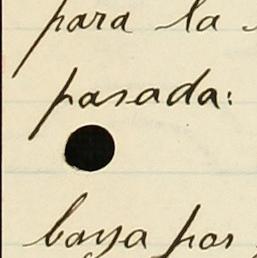 para la
pasada:
baya por